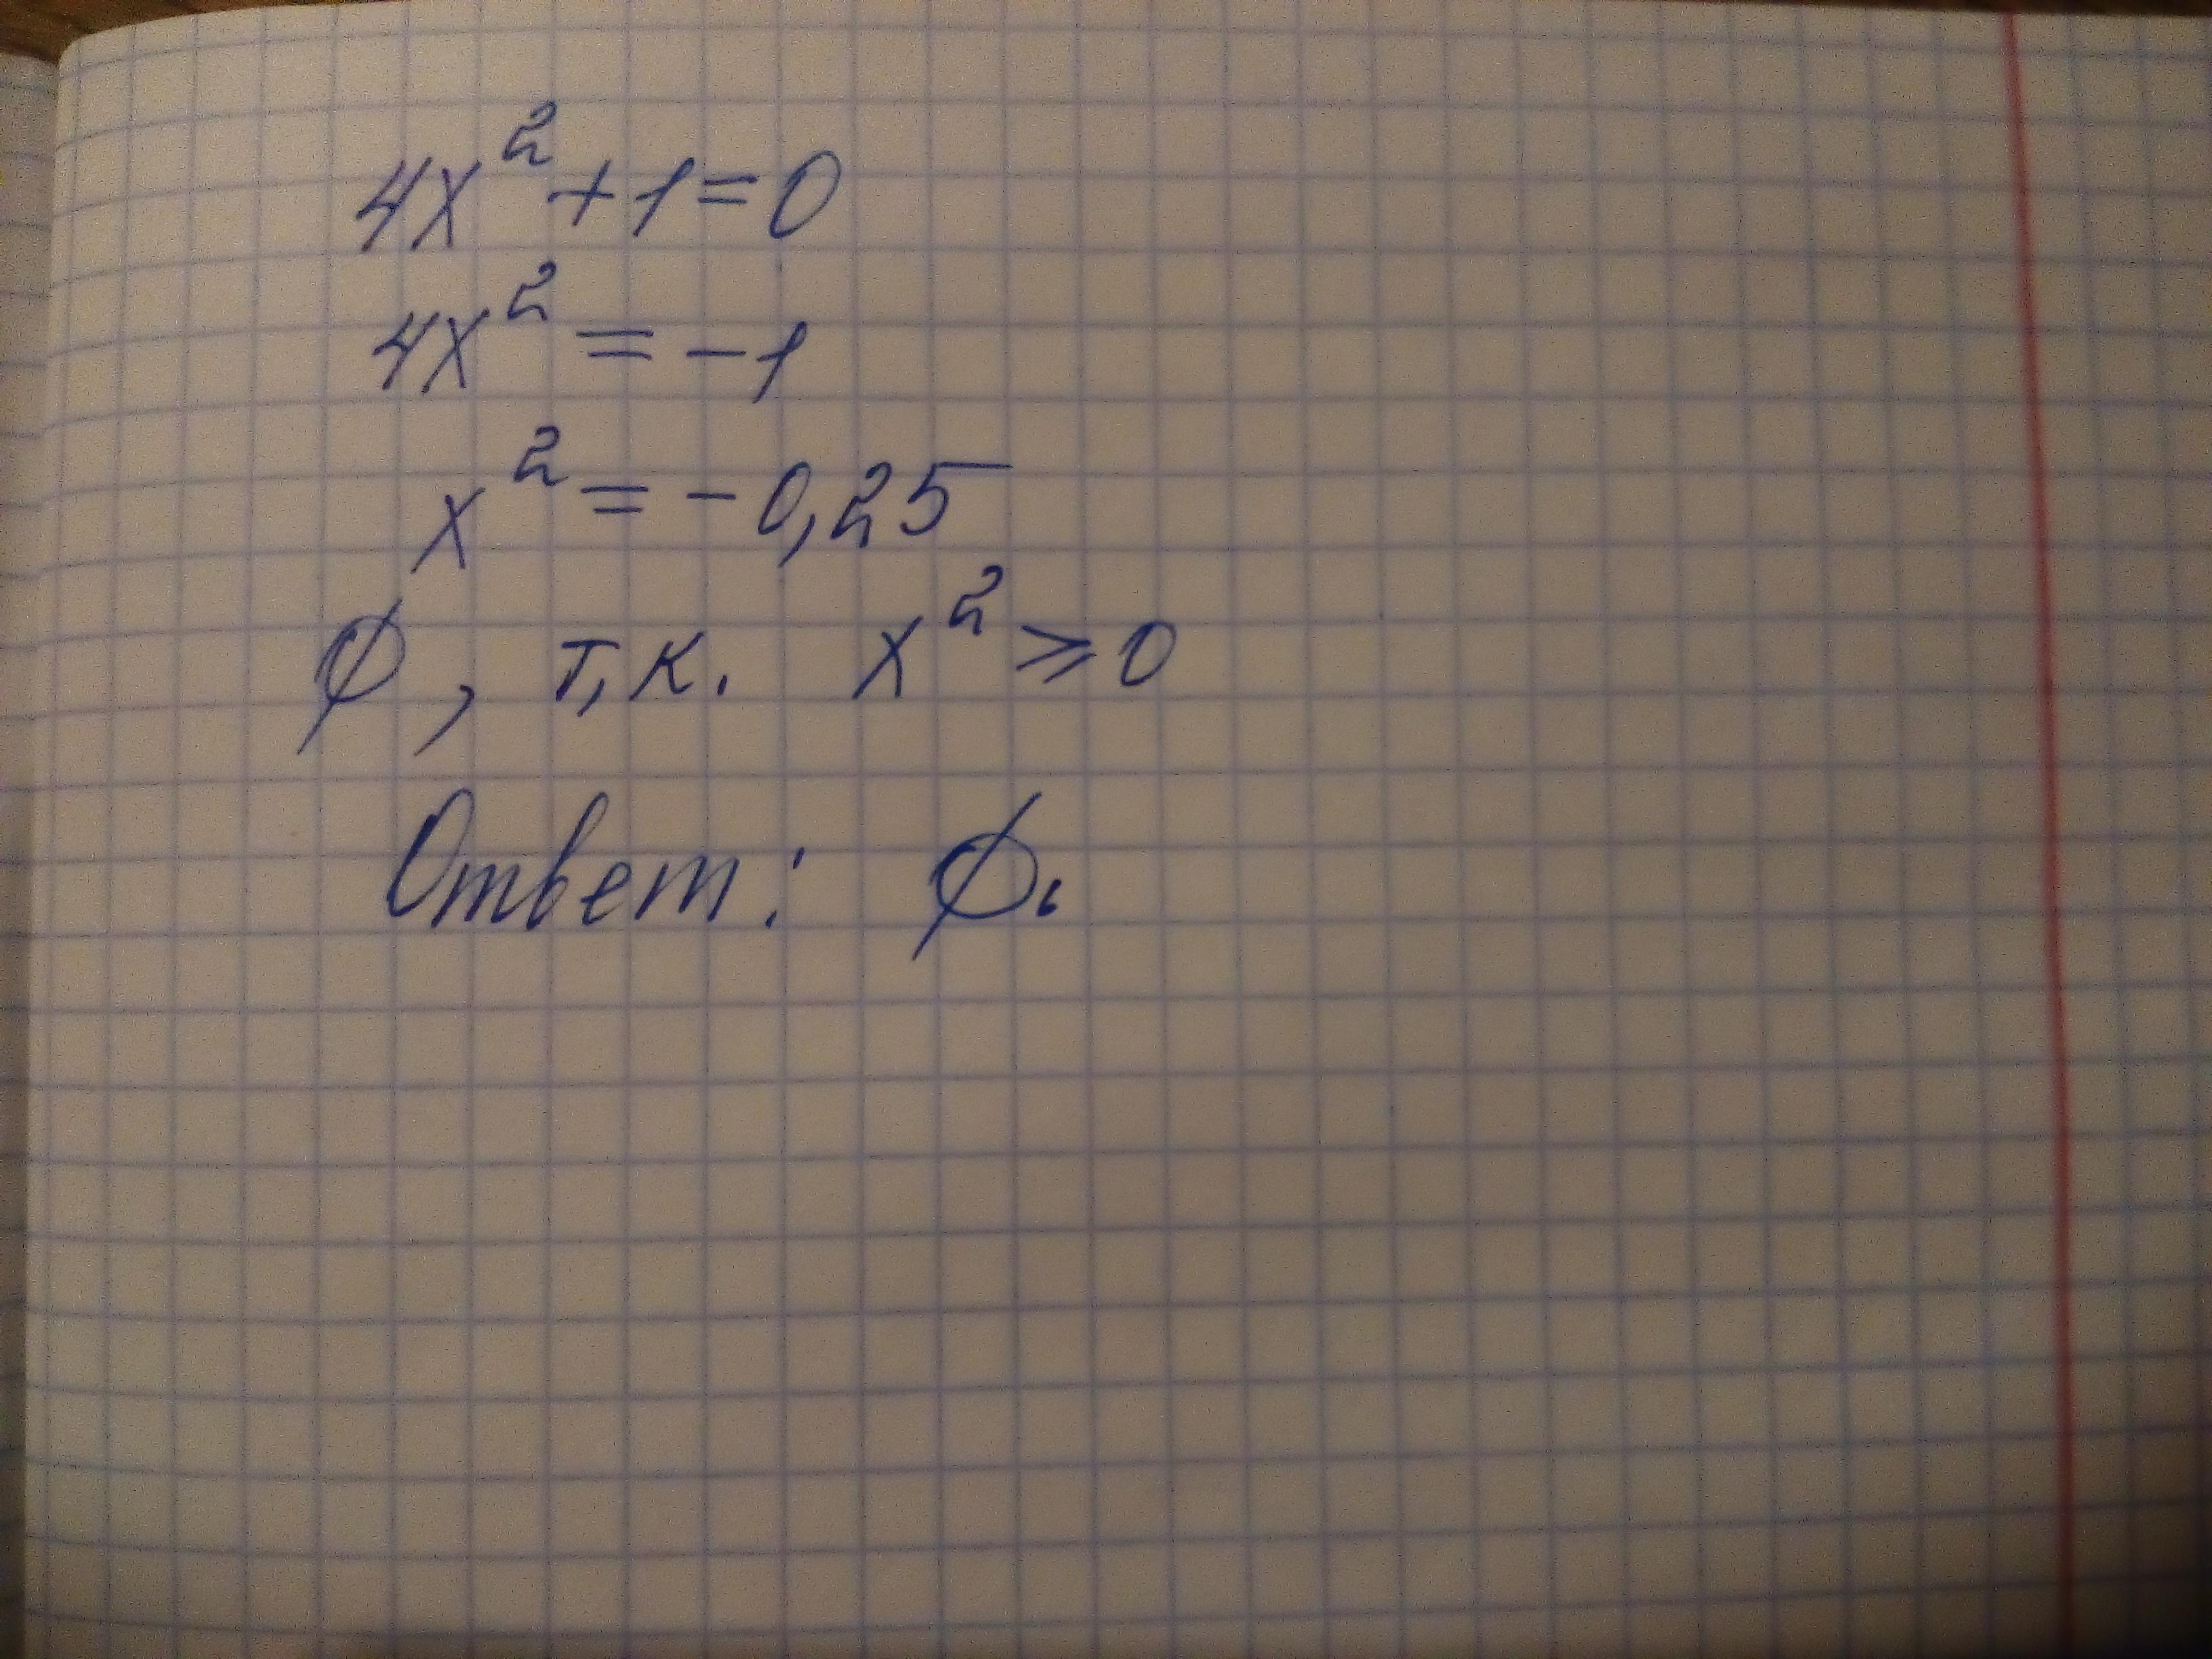 4x² + 1 = 0
4x² = -1
x² = -0,25
∅, т.к. x² ⩾ 0
Ответ: ∅.